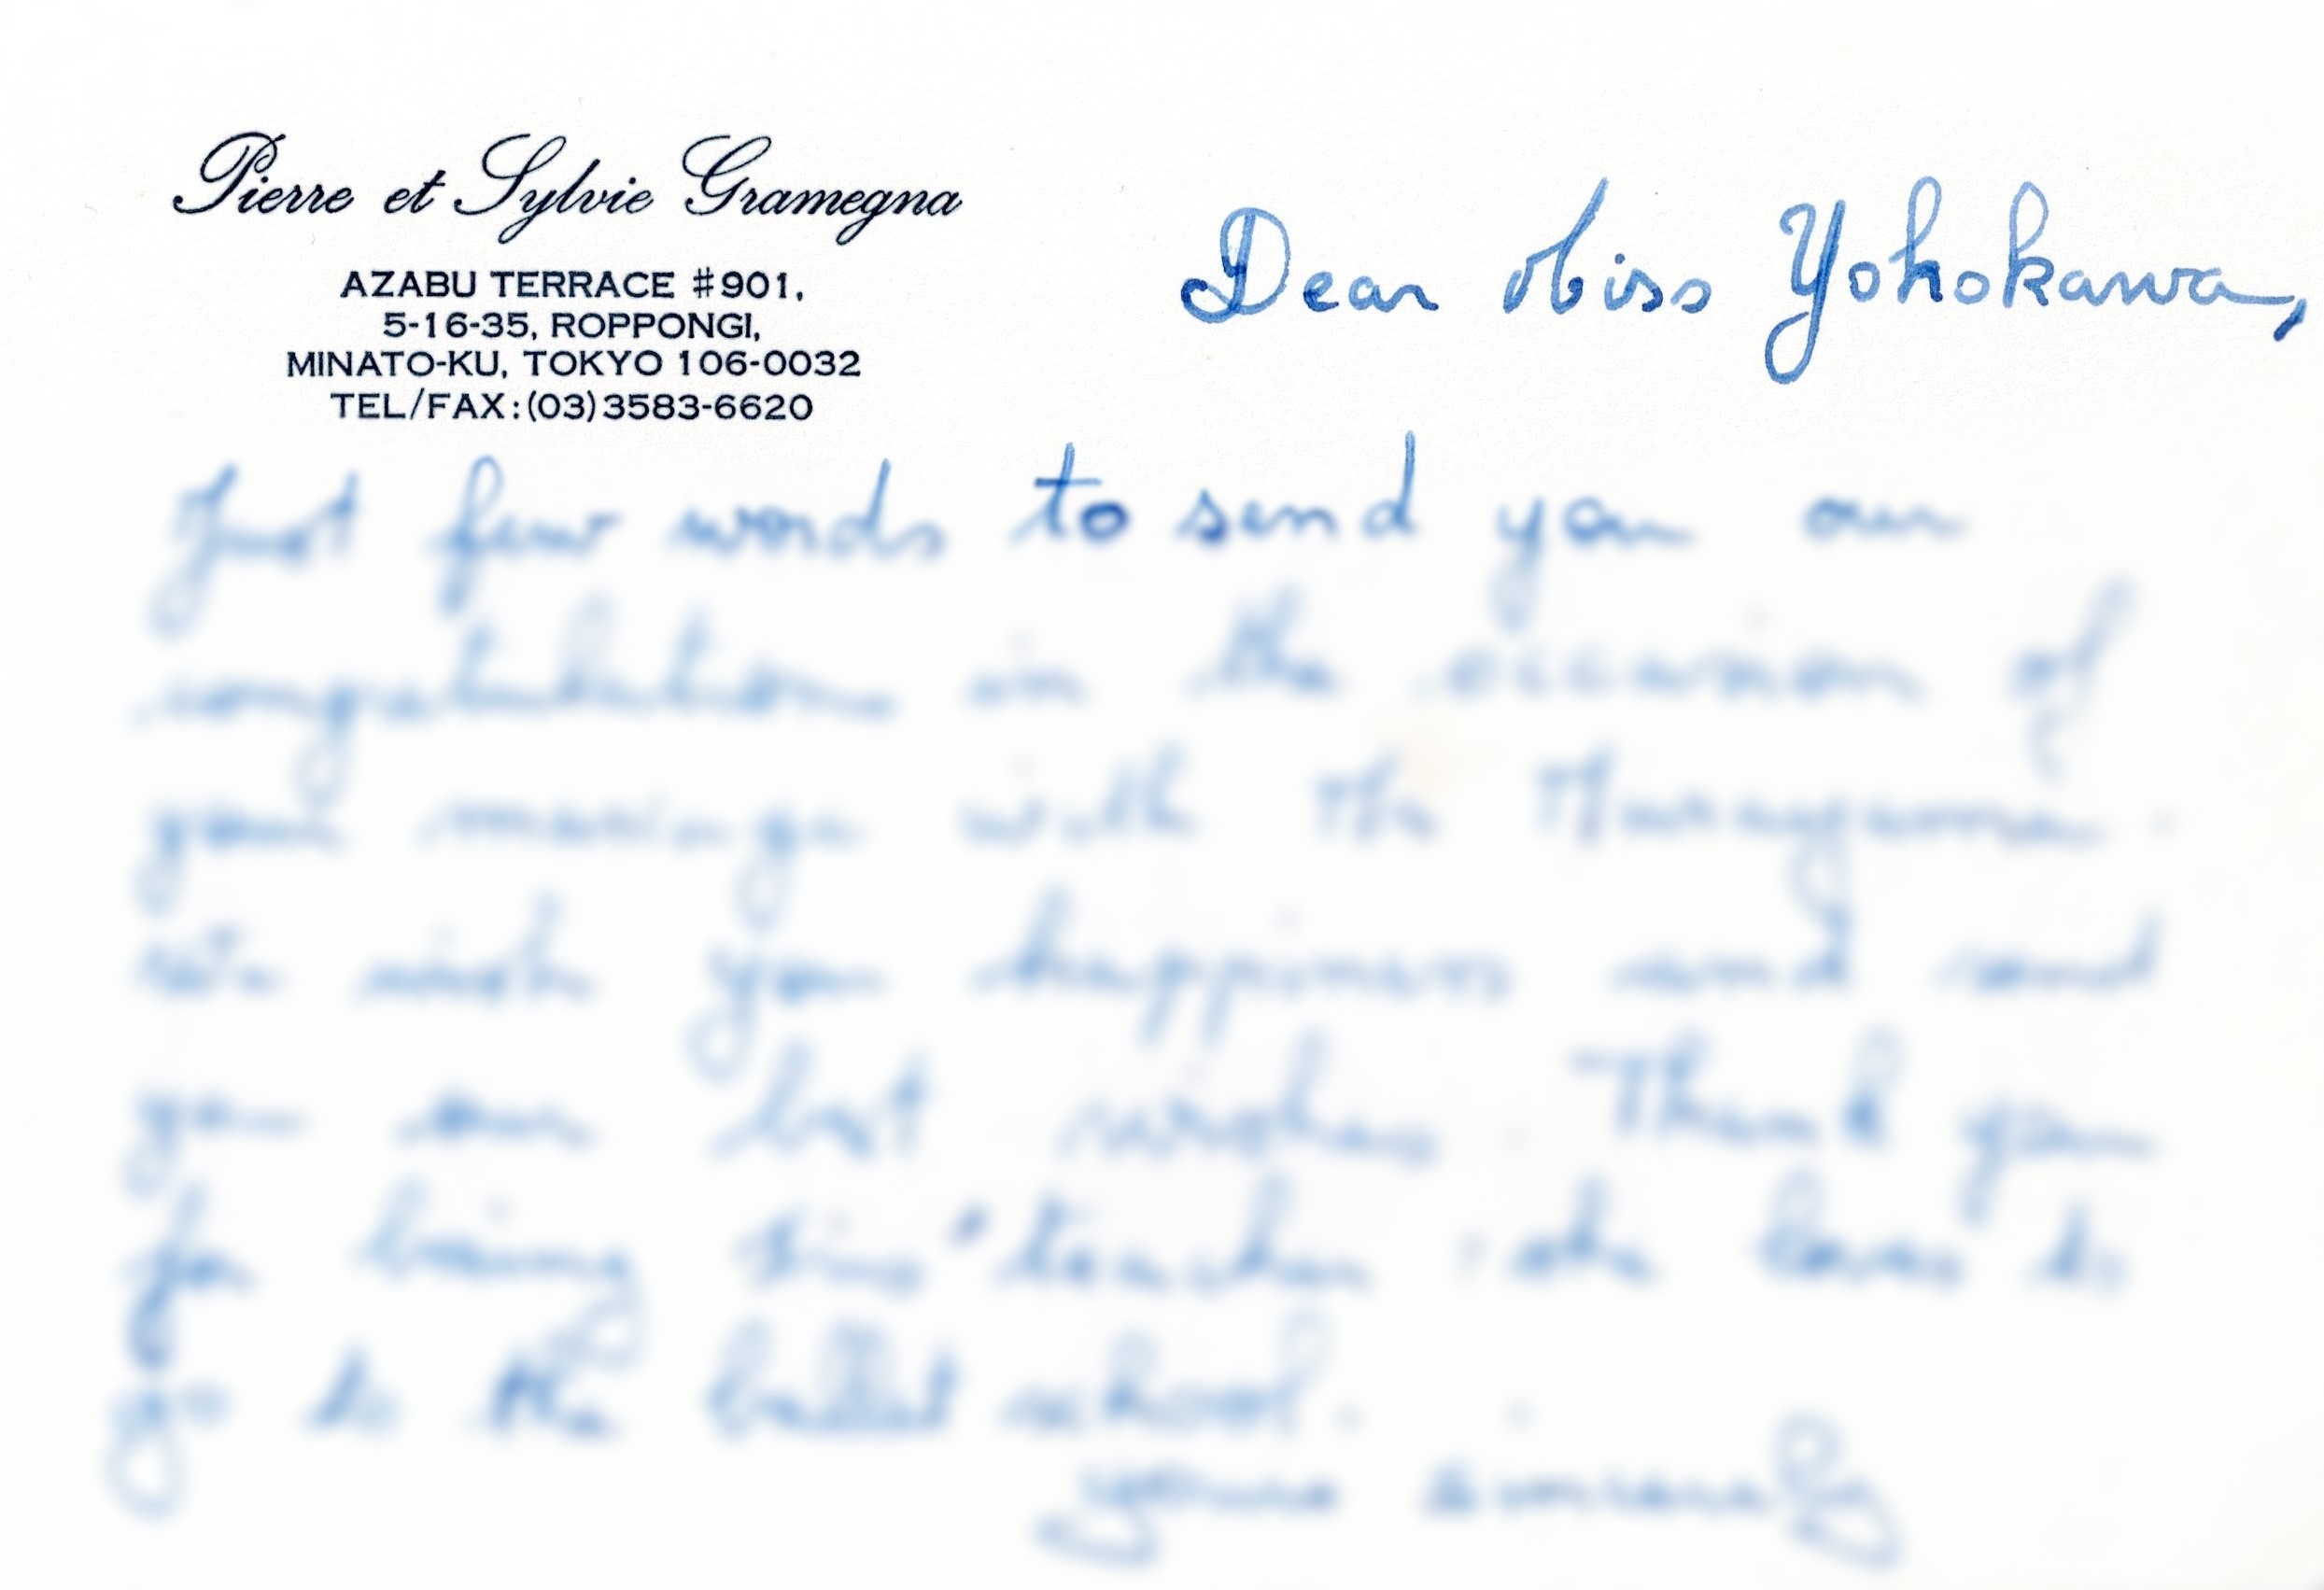 Pierre et Sylvie Gramegna
AZABU TERRACE #901,
5-16-35, ROPPONGI,
MINATO-KU, TOKYO 106-0032
TEL/FAX:(03)3583-6620
Dear Miss Yohokawa,
Just few words to send you our
congratulations in the occasion of
your mariage with Mr Murayama.
We wish you happiness and send
you our best wishes. Thank you
for being teacher : she loves to
go to the ballet school.
yours sincerely